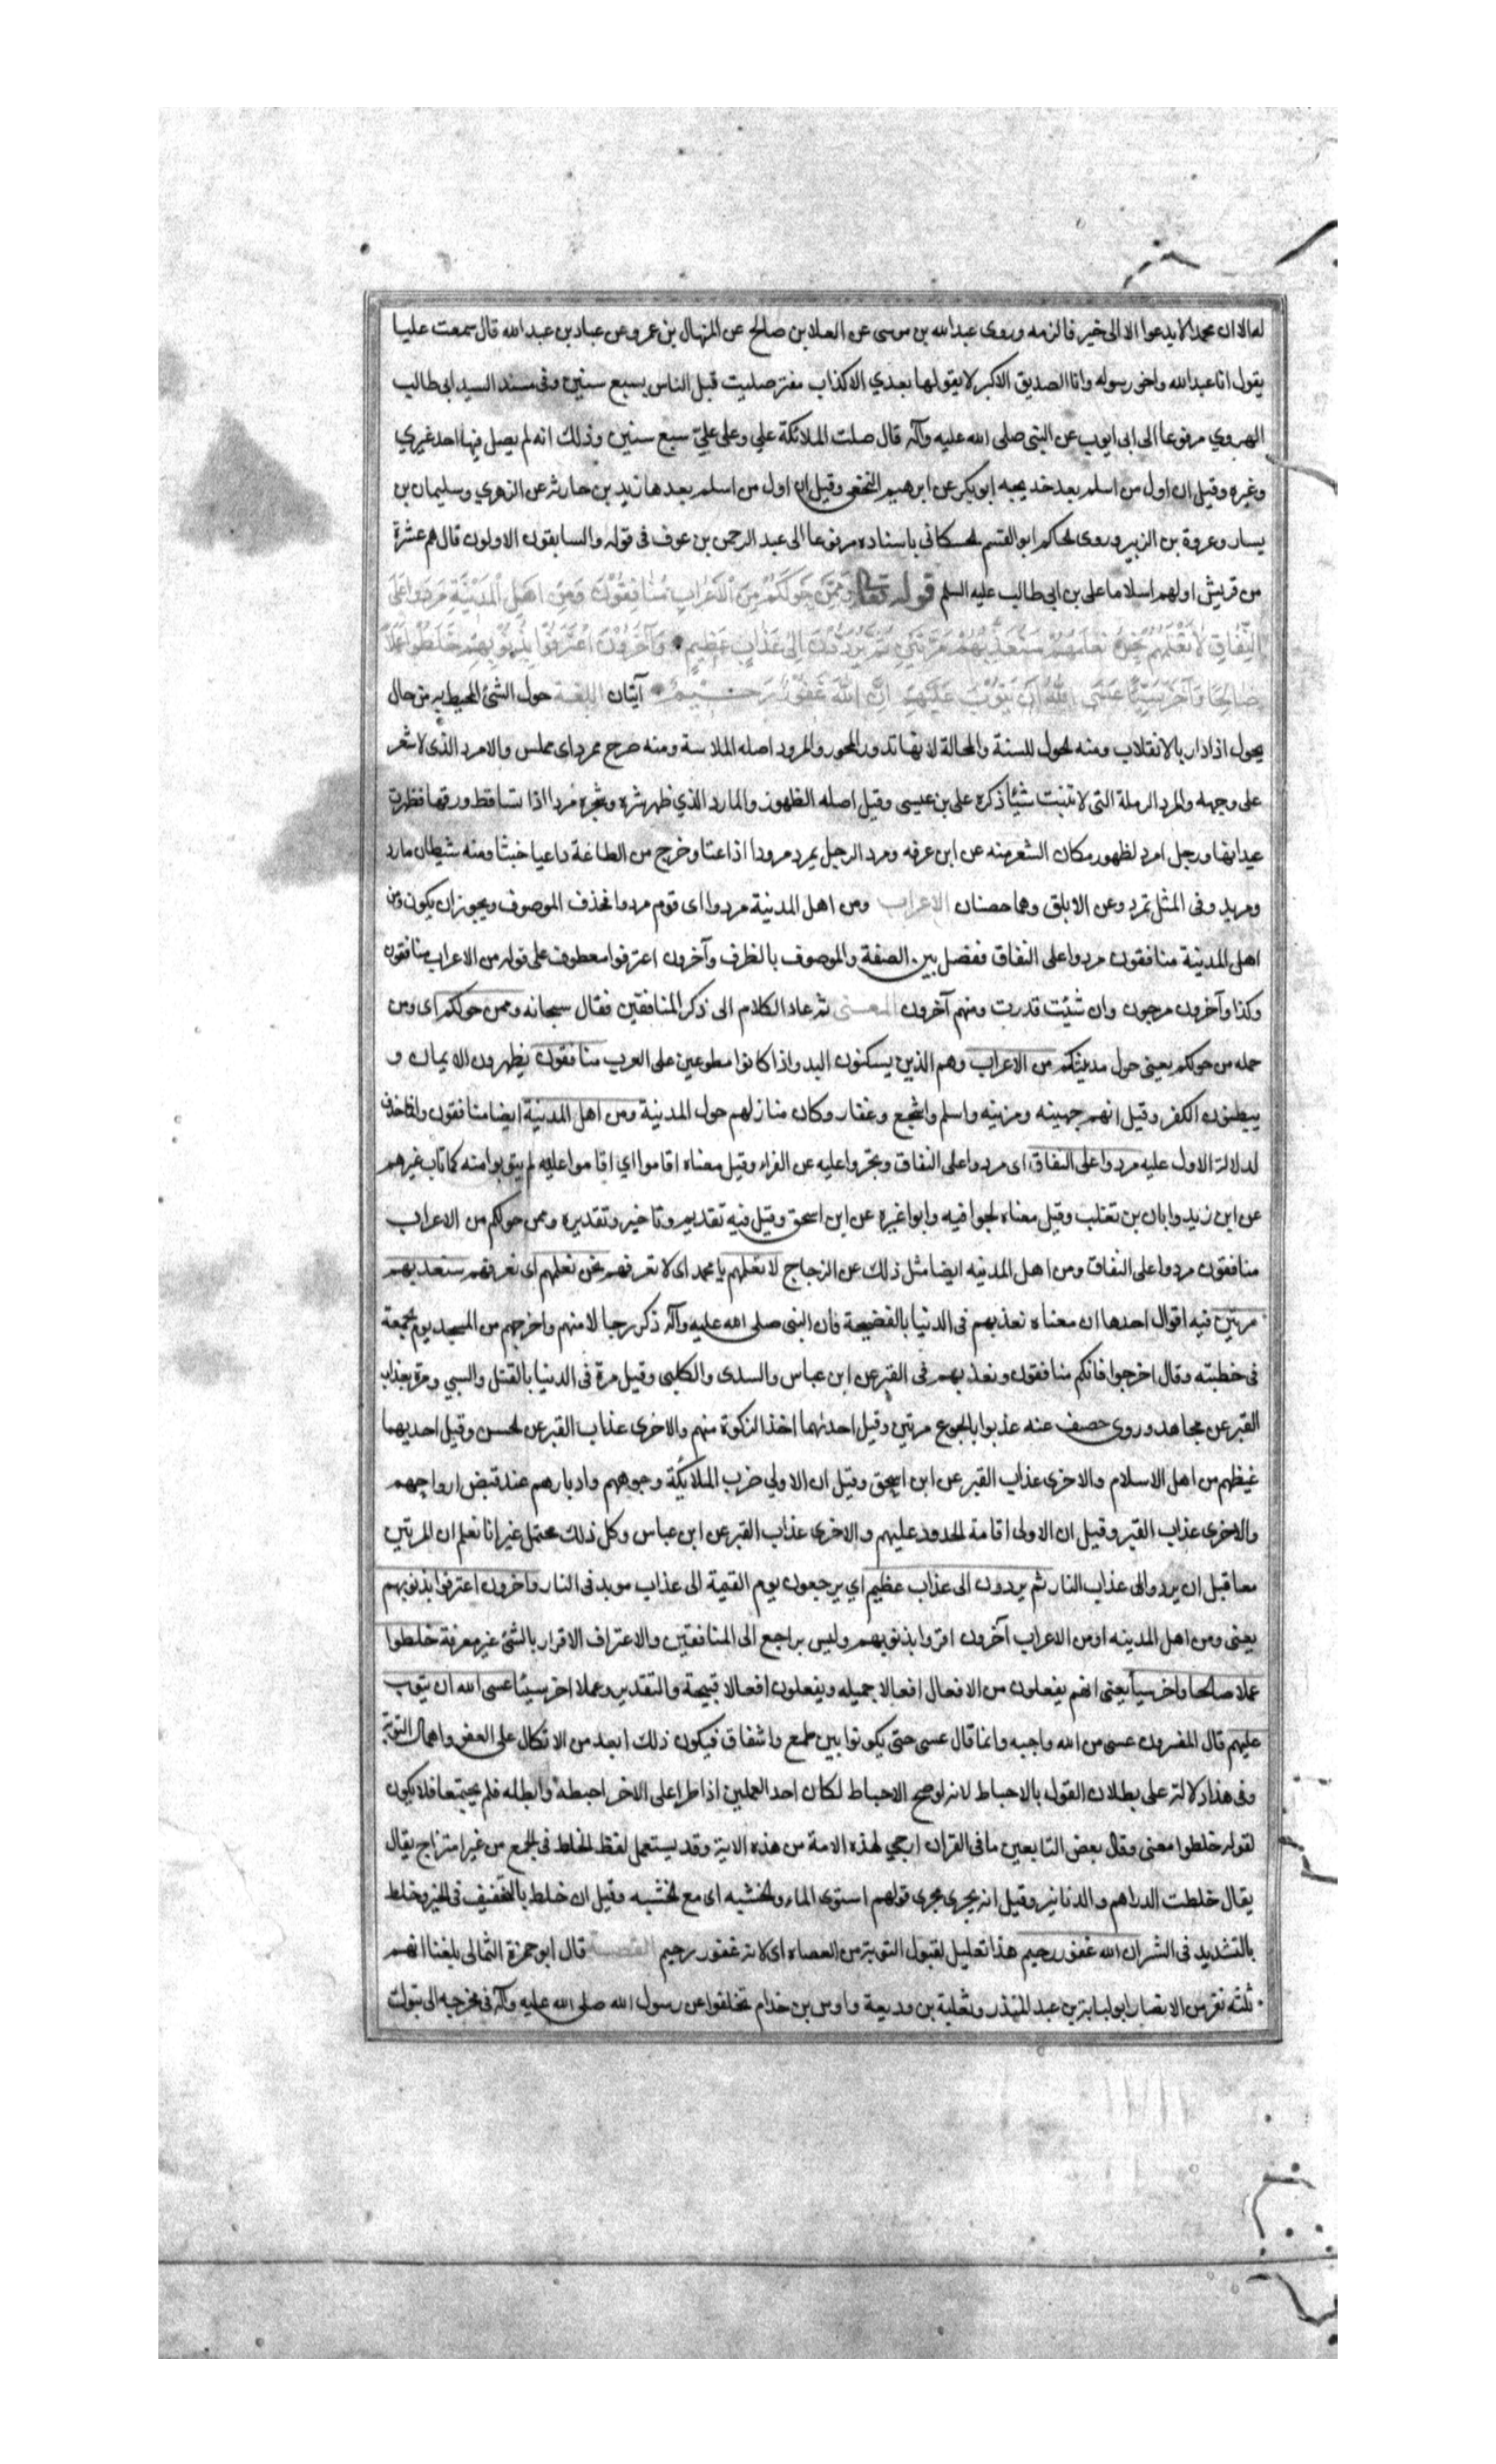 له الا ان محمدا لا يدعوا الا الى خير فالزمه وروى عبد الله بن موسى عن العلا بن صالح عن المنهال بن عمرو عن عباد بن عبد الله قال سمعت عليا
يقول انا عبد الله واخو رسوله وانا الصديق الاكبر لا يقولها بعدي الا كذاب مفتر صليت قبل الناس بسبع سنين وفى مسند السيد ابى طالب
الهروي مرفوعا الى ابى ايوب عن النبى صلى الله عليه وآله قال صلت الملائكة علي وعلى عليّ سبع سنين وذلك انه لم يصل فيها احد غيري
وغيره وقيل ان اول من اسلم بعد خديجه ابو بكر عن ابرهيم النخعى وقيل ان اول من اسلم بعدها زيد بن حارثه عن الزهري وسليمان بن
يسار وعروة بن الزبير وروى الحاكم ابو القسم الحسكانى باسناده مرفوعا الى عبد الرحمن بن عوف فى قوله والسابقون الاولون قال هم عشرة
من قريش اولهم اسلاما على بن ابى طالب عليه السلم قوله تعالى وَمِمَّنْ حَوْلَكُمْ مِنَ الْاَعْرَابِ مُنَافِقُونَ وَمِنْ اَهْلِ الْمَدِيْنَةِ مَرَدُوا عَلَى
النِّفَاقِ لَا تَعْلَمُهُمْ نَحْنُ نَعْلَمُهُمْ سَنُعَذِّبُهُمْ مَرَّتَيْنِ ثُمَّ يُرَدُّونَ اِلى عَذَابٍ عَظِيمٍ وَآخَرُونَ اعْتَرَفُوا بِذُنُوبِهِمْ خَلَطُوا عَمَلًا
صَالِحًا وَآخَرَ سَيِّئًا عَسَى اللهُ اَنْ يَتُوْبَ عَلَيْهِمْ اِنَّ اللهَ غَفُوْرٌ رَحِيْمٌ آيتان اللغة حول الشئ المحيط به من حال
يحول اذا دار بالانقلاب ومنه الحول للسنة والمحالة لانها تدور المحور والمرود اصله الملاسة ومنه صرح ممرد اى مملس والامرد الذى لا شعر
على وجهه والمرد الرملة التى لا تنبت شيئا ذكره على بن عيسى وقيل اصله الظهور والمارد الذي ظهر شره وشجرة مردا اذا تساقط ورقها فظهرت
عيدانها ورجل امرد لظهور مكان الشعر منه عن ابن عرفه ومرد الرجل يمرد مرودا اذا عتا وخرج من الطاعة واعيا خبثا ومنه شيطان مارد
ومريد وفى المثل تمرد وعن الابلق وهما حصنان الاعراب ومن اهل المدينة مردوا اى قوم مردوا فحذف الموصوف ويجوز ان يكون ومن
اهل المدينة منافقون مردوا على النفاق ففصل بين الصفة والموصوف بالظرف وآخرون اعترفوا معطوف على قوله من الاعراب منافقون
وكذا وآخرون مرجون وان شئت قدرت ومنهم آخرون المعنى ثم عاد الكلام الى ذكر المنافقين فقال سبحانه وممن حولكم اى ومن
جمله من حولكم يعنى حول مدينتكم من الاعراب وهم الذين يسكنون البدو اذا كانوا مطبوعين على العرب منافقون يظهرون الايمان و
يبطنون الكفر وقيل انهم جهينه ومزينه واسلم واشجع وغفار وكان منازلهم حول المدينة ومن اهل المدينة ايضا منافقون وانما حذف
لدلالة الاول عليه مردوا على النفاق اى مردوا على النفاق وتجروا عليه عن الفراء وقيل معناه اقاموا اي اقاموا عليه لم يتوبوا منه كما تاب غيرهم
عن ابن زيد وابان بن تغلب وقيل معناه لجوا فيه وابوا غيره عن ابن اسحق وقيل فيه تقديم وتاخير وتقديره وممن حولكم من الاعراب
منافقون مردوا على النفاق ومن اهل المدينه ايضا مثل ذلك عن الزجاج لا تعلمهم يا محمد اى لا تعرفهم نحن نعلمهم اى نعرفهم سنعذبهم
مرتين فيه اقوال احدها ان معناه نعذبهم فى الدنيا بالفضيحة فان النبى صلى الله عليه وآله ذكر رجالا منهم واخرجهم من المسجد يوم الجمعة
فى خطبته وقال اخرجوا فانكم منافقون ونعذبهم فى القبر عن ابن عباس والسدى والكلبى وقيل مرة فى الدنيا بالقتل والسبي ومرة بعذاب
القبر عن مجاهد وروى حصيف عنه عذبوا بالجوع مرتين وقيل احدىهما اخذ الزكوة منهم والاخرى عذاب القبر عن الحسن وقيل احديهما
غيظهم من اهل الاسلام والاخرى عذاب القبر عن ابن اسحق وقيل ان الاولي ضرب الملايكة وجوههم وادبارهم عند قبض ارواحهم
والاخرى عذاب القبر وقيل ان الاولى اقامة الحدود عليهم والاخرى عذاب القبر عن ابن عباس وكل ذلك محتمل غير انا نعلم ان المرتين
معا قبل ان يردوا الى عذاب النار ثم يردون الى عذاب عظيم اي يرجعون يوم القيمة الى عذاب موبد فى النار واخرون اعترفوا بذنوبهم
يعنى ومن اهل المدينه اومن الاعراب آخرون اقروا بذنوبهم وليس براجع الى المنافقين والاعتراف الاقرار بالشئ عن معرفة خلطوا
عملا صالحا واخر سيأ يعنى انهم يفعلون من الافعال افعالا جميله ويفعلون افعالا قبيحة والتقدير وعملا اخر سيئا عسى الله ان يتوب
عليهم قال المفسرون عسى من الله واجبه وانما قال عسى حتى يكونوا بين طمع واشفاق فيكون ذلك ابعد من الاتكال على العفو واهمال التوبة
وفى هذا دلالة على بطلان القول بالاحباط لانه لو صح الاحباط لكان احد العملين اذا طرا على الاخر احبطه وابطله فلم يجتمعا فلا يكون
لقوله خلطوا معنى وقال بعض التابعين ما فى القران ارجي لهذه الامة من هذه الاية وقد يستعمل لفظ الخلط فى الجمع من غير امتزاج يقال
يقال خلطت الدراهم والدنانير وقيل انه يجرى مجرى قولهم استوى الماء والخشبه اى مع الخشبه وقيل ان خلط بالتخفيف فى الخير وخلط
بالتشديد فى الشر ان الله غفور رحيم هذا تعليل لقبول التوبة من العصاه اى لانه غفور رحيم القصة قال ابو حمزة الثمالى بلغنا انهم
ثلثه نفر من الانصار ابو لبابة بن عبد المنذر وثعلبة بن وديعة واوس بن خذام تخلفوا عن رسول الله صلى الله عليه وآله فى مخرجه الى تبوك